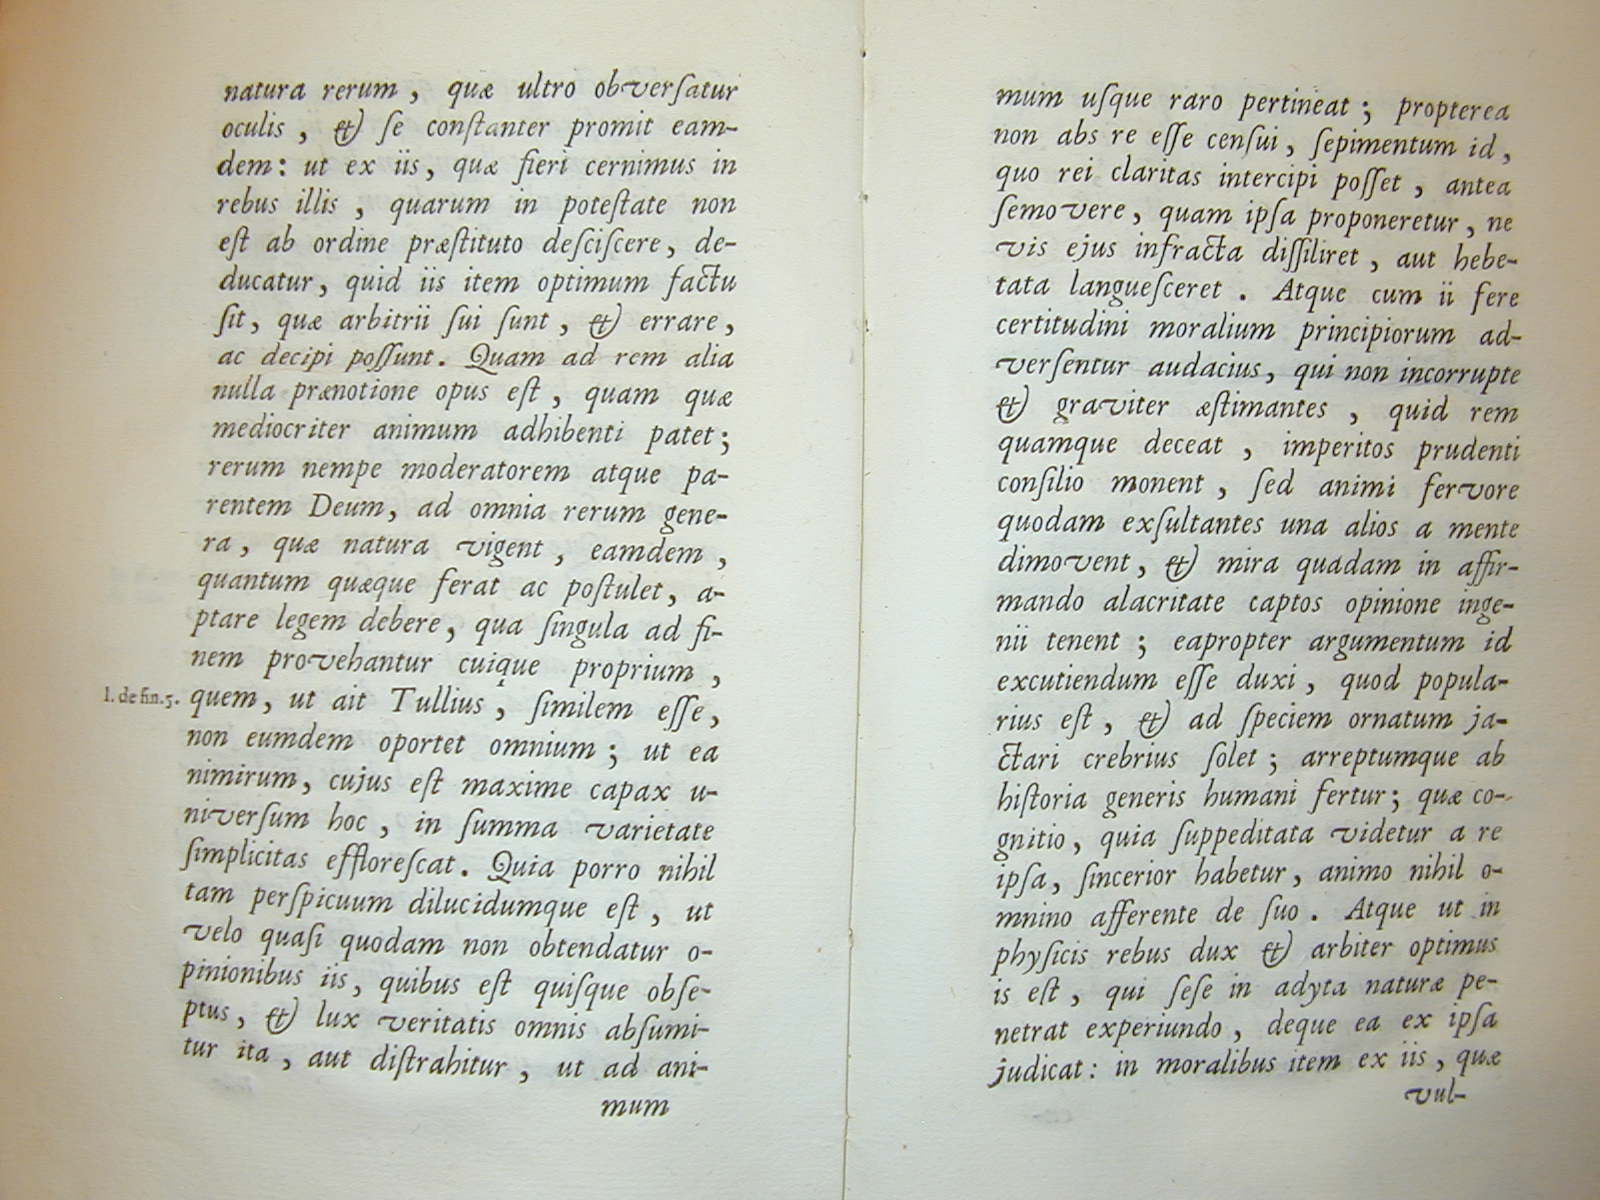 natura rerum, quæ ultro obverſatur
oculis, & ſe conſtanter promit eam-
dem: ut ex iis, quæ fieri cernimus in
rebus illis, quarum in poteſtate non
eſt ab ordine præſtituto deſciſcere, de-
ducatur, quid iis item optimum factu
ſit, quæ arbitrii ſui ſunt, & errare,
ac decipi poſſunt. Quam ad rem alia
nulla prænotione opus eſt, quam quæ
mediocriter animum adhibenti patet;
rerum nempe moderatorem atque pa-
rentem Deum, ad omnia rerum gene-
ra, quæ natura vigent, eamdem,
quantum quæque ferat ac poſtulet, a-
ptare legem debere, qua ſingula ad fi-
nem provehantur cuique proprium,
l. de fin. 5. quem, ut ait Tullius, ſimilem eſſe,
non eumdem oportet omnium; ut ea
nimirum, cujus eſt maxime capax u-
niverſum hoc, in ſumma varietate
ſimplicitas effloreſcat. Quia porro nihil
tam perſpicuum dilucidumque eſt, ut
velo quaſi quodam non obtendatur o-
pinionibus iis, quibus eſt quiſque obſe-
ptus, & lux veritatis omnis abſumi-
tur ita, aut diſtrahitur, ut ad ani-
mum
mum uſque raro pertineat; propterea
non abs re eſſe cenſui, ſepimentum id,
quo rei claritas intercipi poſſet, antea
ſemovere, quam ipſa proponeretur, ne
vis ejus infracta diſſiliret, aut hebe-
tata langueſceret. Atque cum ii fere
certitudini moralium principiorum ad-
verſentur audacius, qui non incorrupte
& graviter æſtimantes, quid rem
quamque deceat, imperitos prudenti
conſilio monent, ſed animi fervore
quodam exſultantes una alios a mente
dimovent, & mira quadam in affir-
mando alacritate captos opinione inge-
nii tenent; eapropter argumentum id
excutiendum eſſe duxi, quod popula-
rius eſt, & ad ſpeciem ornatum ja-
ctari crebrius ſolet; arreptumque ab
hiſtoria generis humani fertur; quæ co-
gnitio, quia ſuppeditata videtur a re
ipſa, ſincerior habetur, animo nihil o-
mnino afferente de ſuo. Atque ut in
phyſicis rebus dux & arbiter optimus
is eſt, qui ſeſe in adyta naturæ pe-
netrat experiundo, deque ea ex ipſa
judicat: in moralibus item ex iis, quæ
vul-